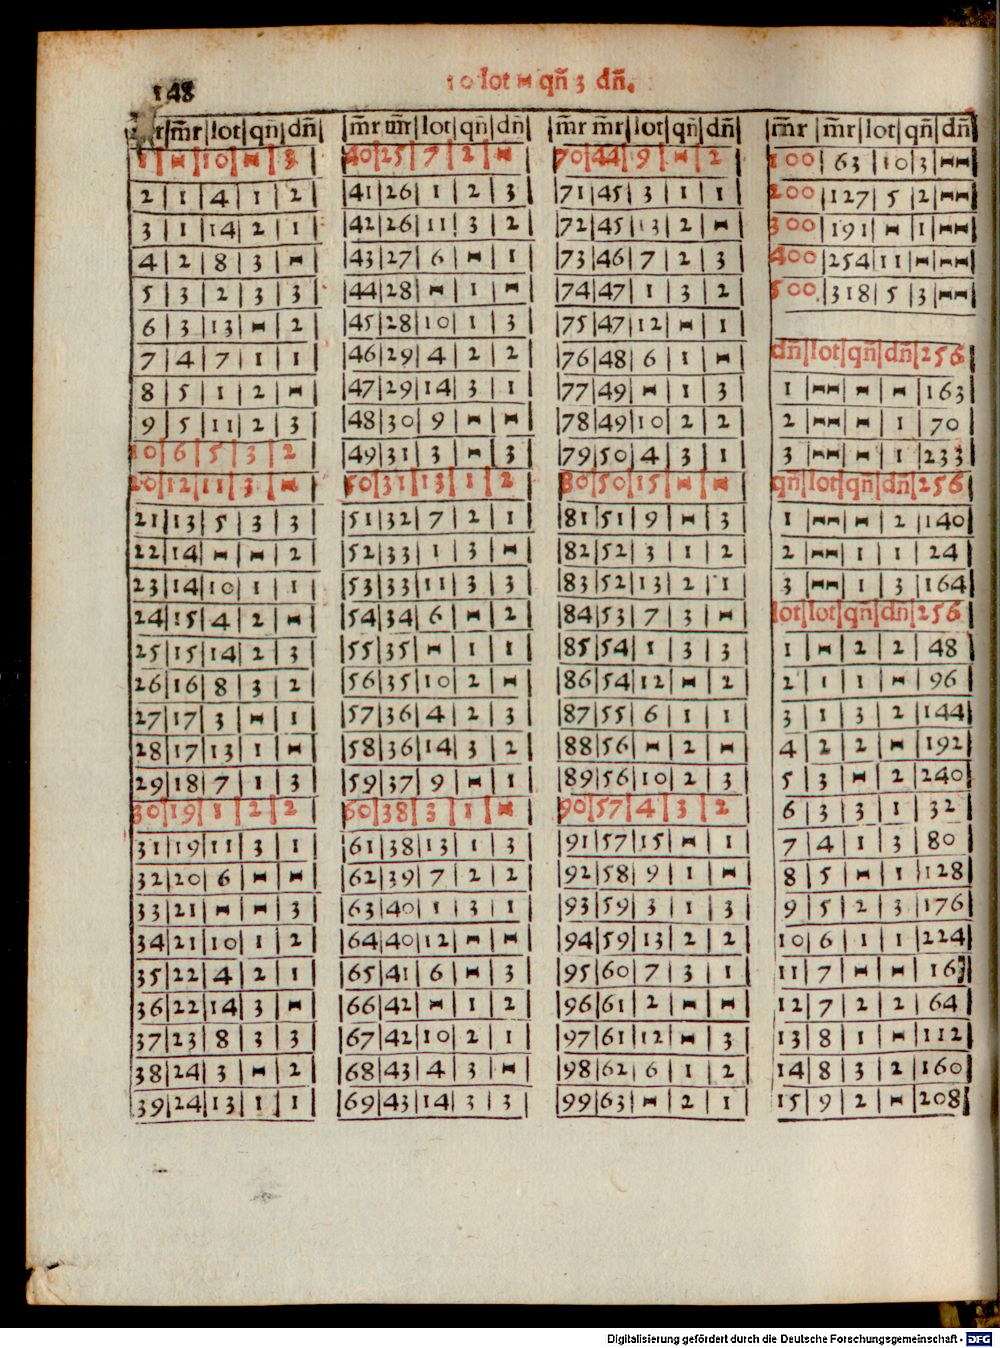 148
10 lot ⧓ qñ 3 dñ.
r|m̄r|lot|qñ|dñ|
1|⧓|10|⧓|3|
2|1|4|1|2|
3|1|14|2|1|
4|2|8|3|⧓|
5|3|2|3|3|
6|3|13|⧓|2|
7|4|7|1|1|
8|5|1|2|⧓|
9|5|11|2|3|
10|6|5|3|2|
20|12|11|3|⧓|
21|13|5|3|3|
22|14|⧓|⧓|2|
23|14|10|1|1|
24|15|4|2|⧓|
25|15|14|2|3|
26|16|8|3|2|
27|17|3|⧓|1|
28|17|13|1|⧓|
29|18|7|1|3|
30|19|1|2|2|
31|19|11|3|1|
32|20|6|⧓|⧓|
33|21|⧓|⧓|3|
34|21|10|1|2|
35|22|4|2|1|
36|22|14|3|⧓|
37|23|8|3|3|
38|24|3|⧓|2|
39|24|13|1|1|
|m̄r m̄r|lot|qñ|dñ|
40|25|7|2|⧓|
41|26|1|2|3|
42|26|11|3|2|
43|27|6|⧓|1|
44|28|⧓|1|⧓|
45|28|10|1|3|
46|29|4|2|2|
47|29|14|3|1|
48|30|9|⧓|⧓|
49|31|3|⧓|3|
50|31|13|1|2|
51|32|7|2|1|
52|33|1|3|⧓|
53|33|11|3|3|
54|34|6|⧓|2|
55|35|⧓|1|1|
56|35|10|2|⧓|
57|36|4|2|3|
58|36|14|3|2|
59|37|9|⧓|1|
60|38|3|1|⧓|
61|38|13|1|3|
62|39|7|2|2|
63|40|1|3|1|
64|40|12|⧓|⧓|
65|41|6|⧓|3|
66|42|⧓|1|2|
67|42|10|2|1|
68|43|4|3|⧓|
69|43|14|3|3|
|m̄r m̄r|lot|qñ|dñ|
70|44|9|⧓|2|
71|45|3|1|1|
72|45|13|2|⧓|
73|46|7|2|3|
74|47|1|3|2|
75|47|12|⧓|1|
76|48|6|1|⧓|
77|49|⧓|1|3|
78|49|10|2|2|
79|50|4|3|1|
80|50|15|⧓|⧓|
81|51|9|⧓|3|
82|52|3|1|2|
83|52|13|2|1|
84|53|7|3|⧓|
85|54|1|3|3|
86|54|12|⧓|2|
87|55|6|1|1|
88|56|⧓|2|⧓|
89|56|10|2|3|
90|57|4|3|2|
91|57|15|⧓|1|
92|58|9|1|⧓|
93|59|3|1|3|
94|59|13|2|2|
95|60|7|3|1|
96|61|2|⧓|⧓|
97|61|12|⧓|3|
98|62|6|1|2|
99|63|⧓|2|1|
|m̄r|m̄r|lot|qñ|dñ|
100|63|10|3|⧓|
200|127|5|2|⧓|
300|191|⧓|1|⧓|
400|254|11|⧓|⧓|
500|318|5|3|⧓|
dñ|lot|qñ|dñ|256|
1|⧓|⧓|⧓|163|
2|⧓|⧓|1|70|
3|⧓|⧓|1|233|
qñ|lot|qñ|dñ|256|
1|⧓|⧓|2|140|
2|⧓|1|1|24|
3|⧓|1|3|164|
lot|lot|qñ|dñ|256|
1|⧓|2|2|48|
2|1|1|⧓|96|
3|1|3|2|144|
4|2|2|⧓|192|
5|3|⧓|2|240|
6|3|3|1|32|
7|4|1|3|80|
8|5|⧓|1|128|
9|5|2|3|176|
10|6|1|1|224|
11|7|⧓|⧓|16|
12|7|2|2|64|
13|8|1|⧓|112|
14|8|3|2|160|
15|9|2|⧓|208|
Digitalisierung gefördert durch die Deutsche Forschungsgemeinschaft - DFG